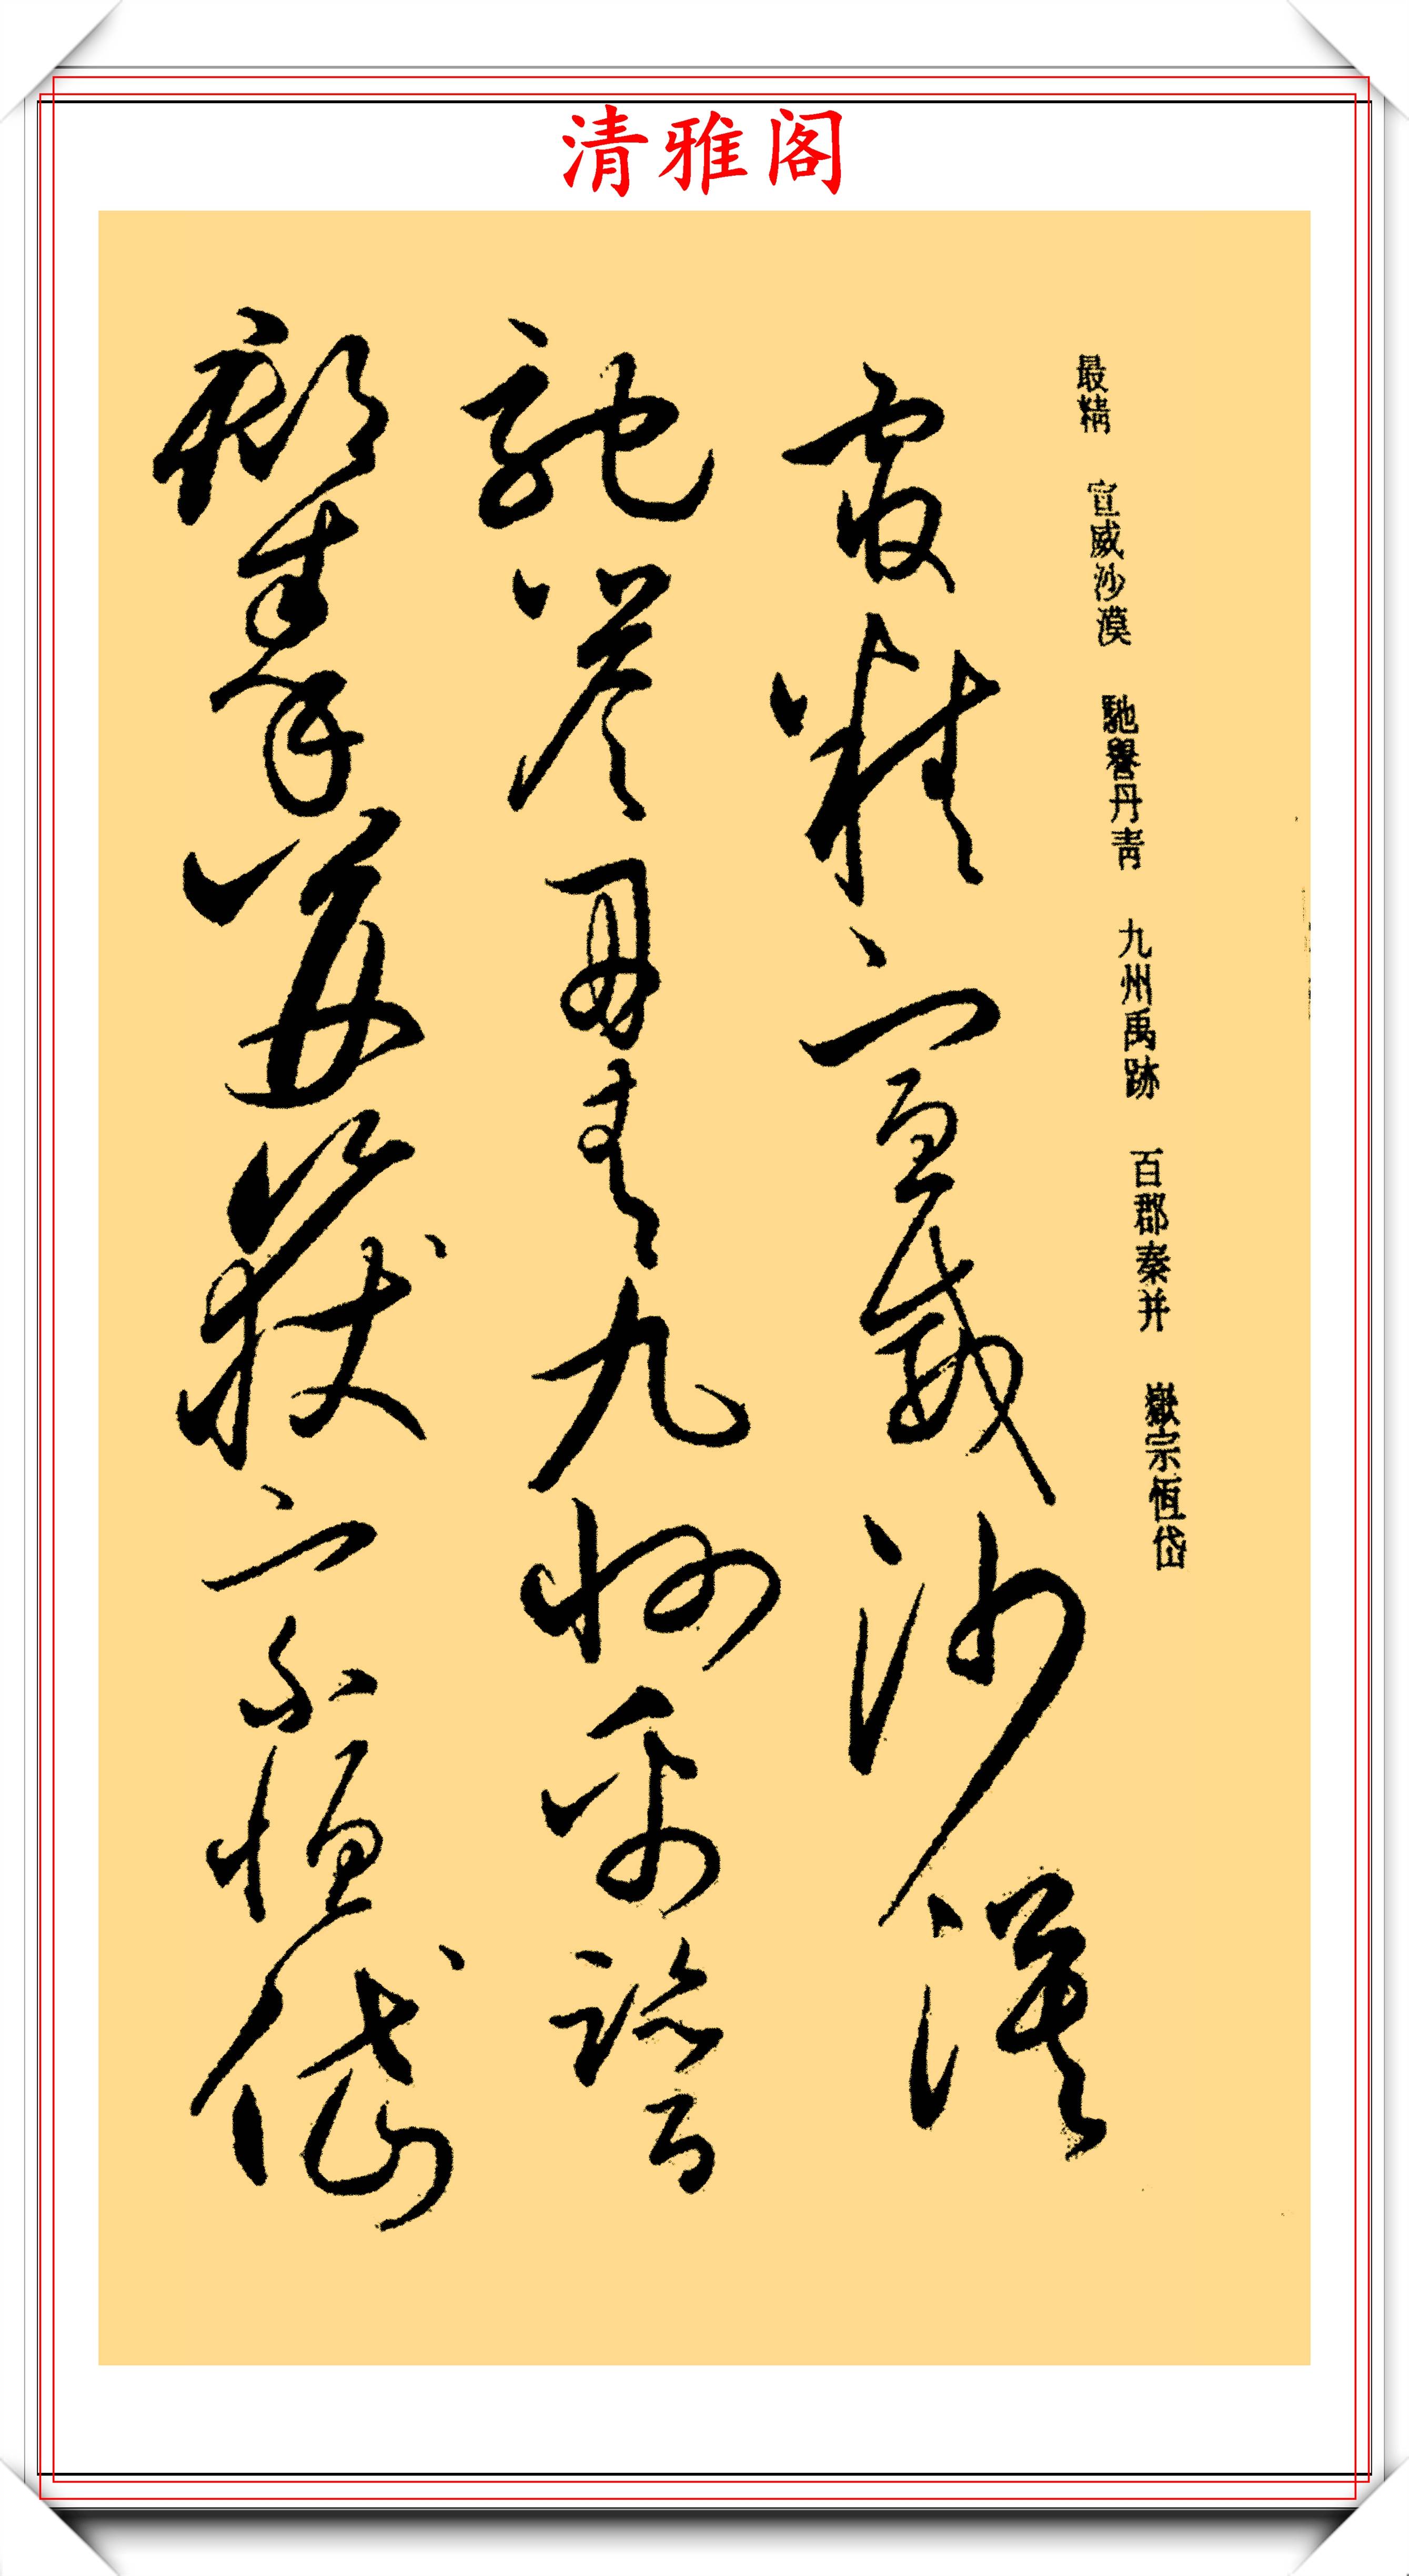 清雅阁
最精 宣威沙漠 馳譽丹青 九州禹跡 百郡秦并 嶽宗恆岱
最精宣威沙漠
馳譽丹青九州禹跡百
郡秦并嶽宗恆岱